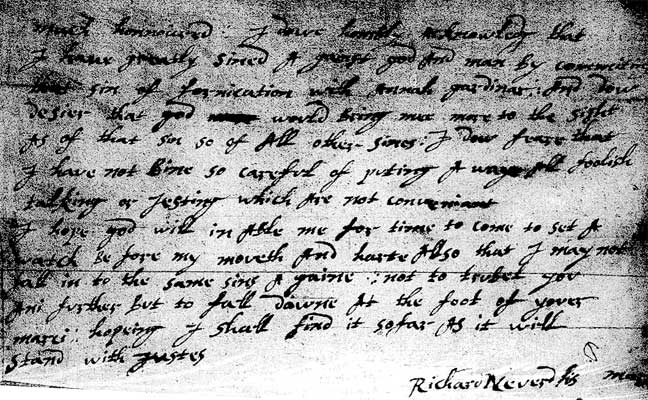 much honnoured : I dowe humbly Acknowledg that
I have greatly sined A gainst god And man by commiting
that sin of fornication with Annah gardinar : And dow
desier that god would bring mee more to the sight
As of that sin so of All other sines : I dow feare that
I have not bine so carefull of puting A waye All foolish
talking or Jesting which Are not conveniant
I hope god will in Able me for time to come to set A
watch be fore my moveth And harte Also that I may not
fall in to the same sins A gaine : not to trubel yov
Ani further but to fall downe At the foot of yover
marci : hoping I shall find it sofar As it will
stand with justes
Richard Neverd his